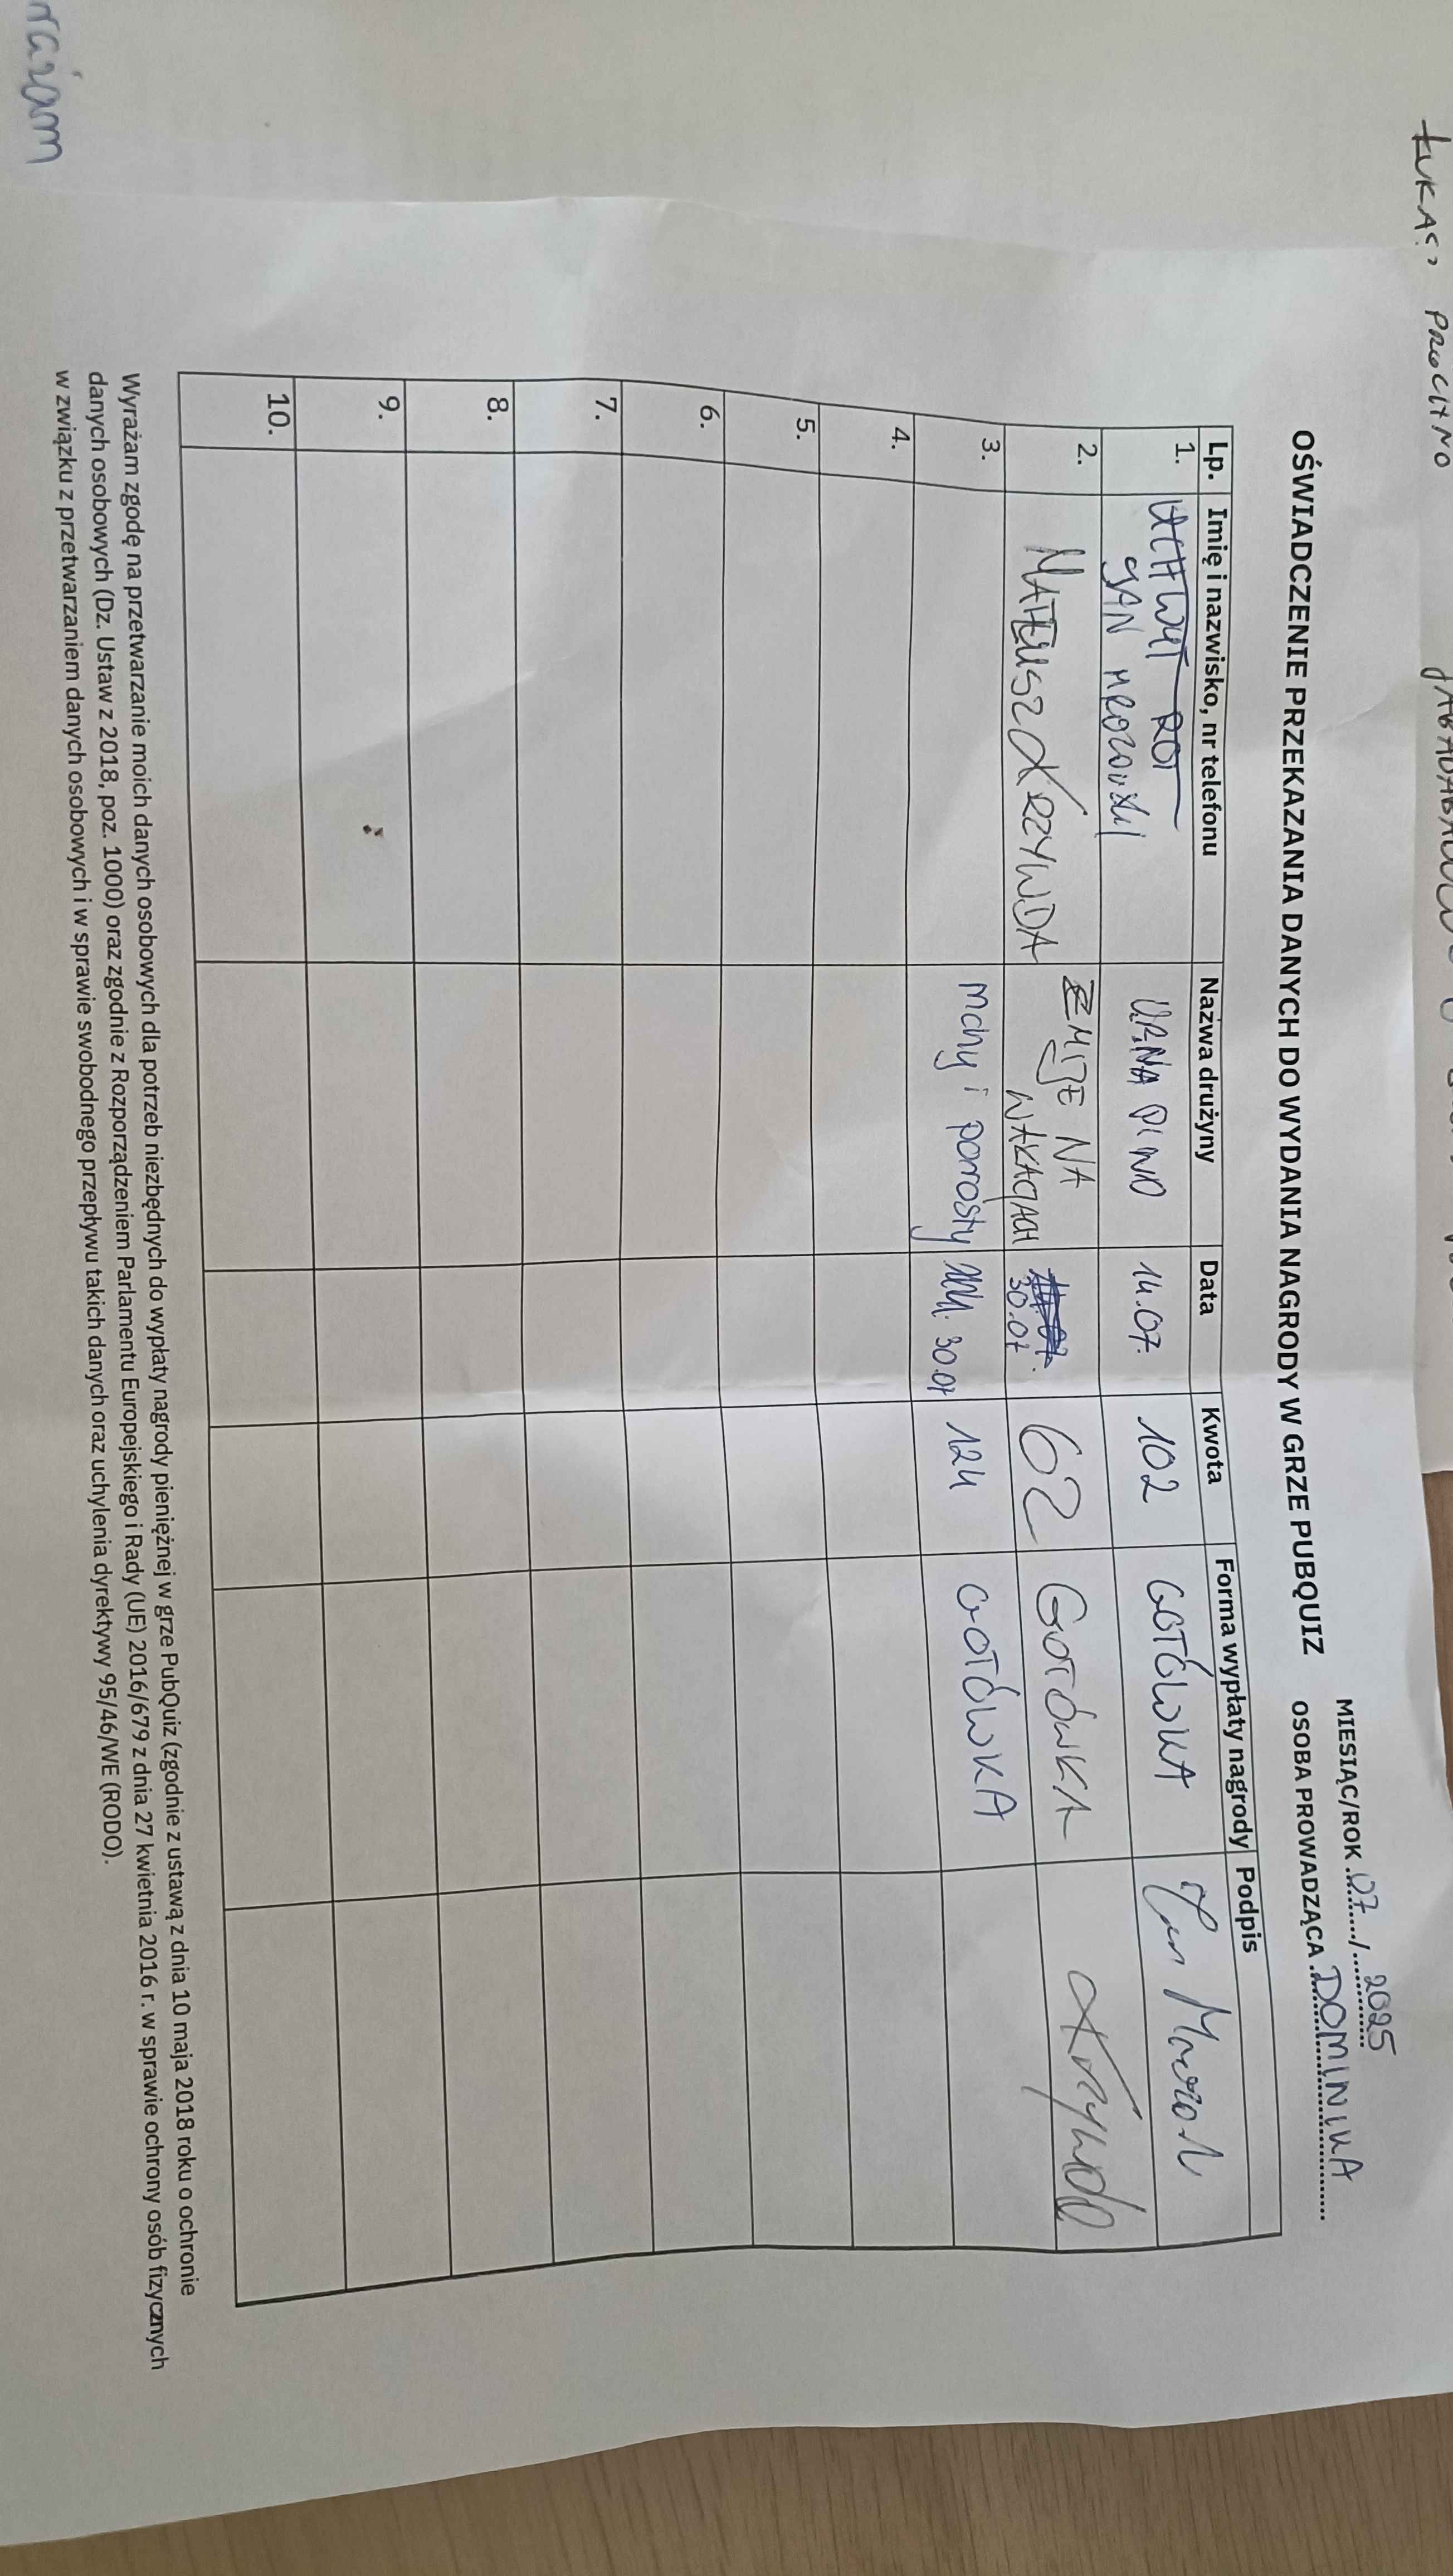 ŁUKASZ PROCHNO
MIESIĄC/ROK 07/2025
OŚWIADCZENIE PRZEKAZANIA DANYCH DO WYDANIA NAGRODY W GRZE PUBQUIZ OSOBA PROWADZĄCA DOMINIKA
Lp. Imię i nazwisko, nr telefonu Nazwa drużyny Data Kwota Forma wypłaty nagrody Podpis
1. JAN MROZOWSKI 14.07. 102 GOTÓWKA
2. MATEUSZ KRZYWDA ŻMIJE NA WAKACJACH 30.07 62 GOTÓWKA Krzywda
3. mchy i porosty 30.07 124 GOTÓWKA
4.
5.
6.
7.
8.
9.
10.
Wyrażam zgodę na przetwarzanie moich danych osobowych dla potrzeb niezbędnych do wypłaty nagrody pieniężnej w grze PubQuiz (zgodnie z ustawą z dnia 10 maja 2018 roku o ochronie
danych osobowych (Dz. Ustaw z 2018, poz. 1000) oraz zgodnie z Rozporządzeniem Parlamentu Europejskiego i Rady (UE) 2016/679 z dnia 27 kwietnia 2016 r. w sprawie ochrony osób fizycznych
w związku z przetwarzaniem danych osobowych i w sprawie swobodnego przepływu takich danych oraz uchylenia dyrektywy 95/46/WE (RODO).